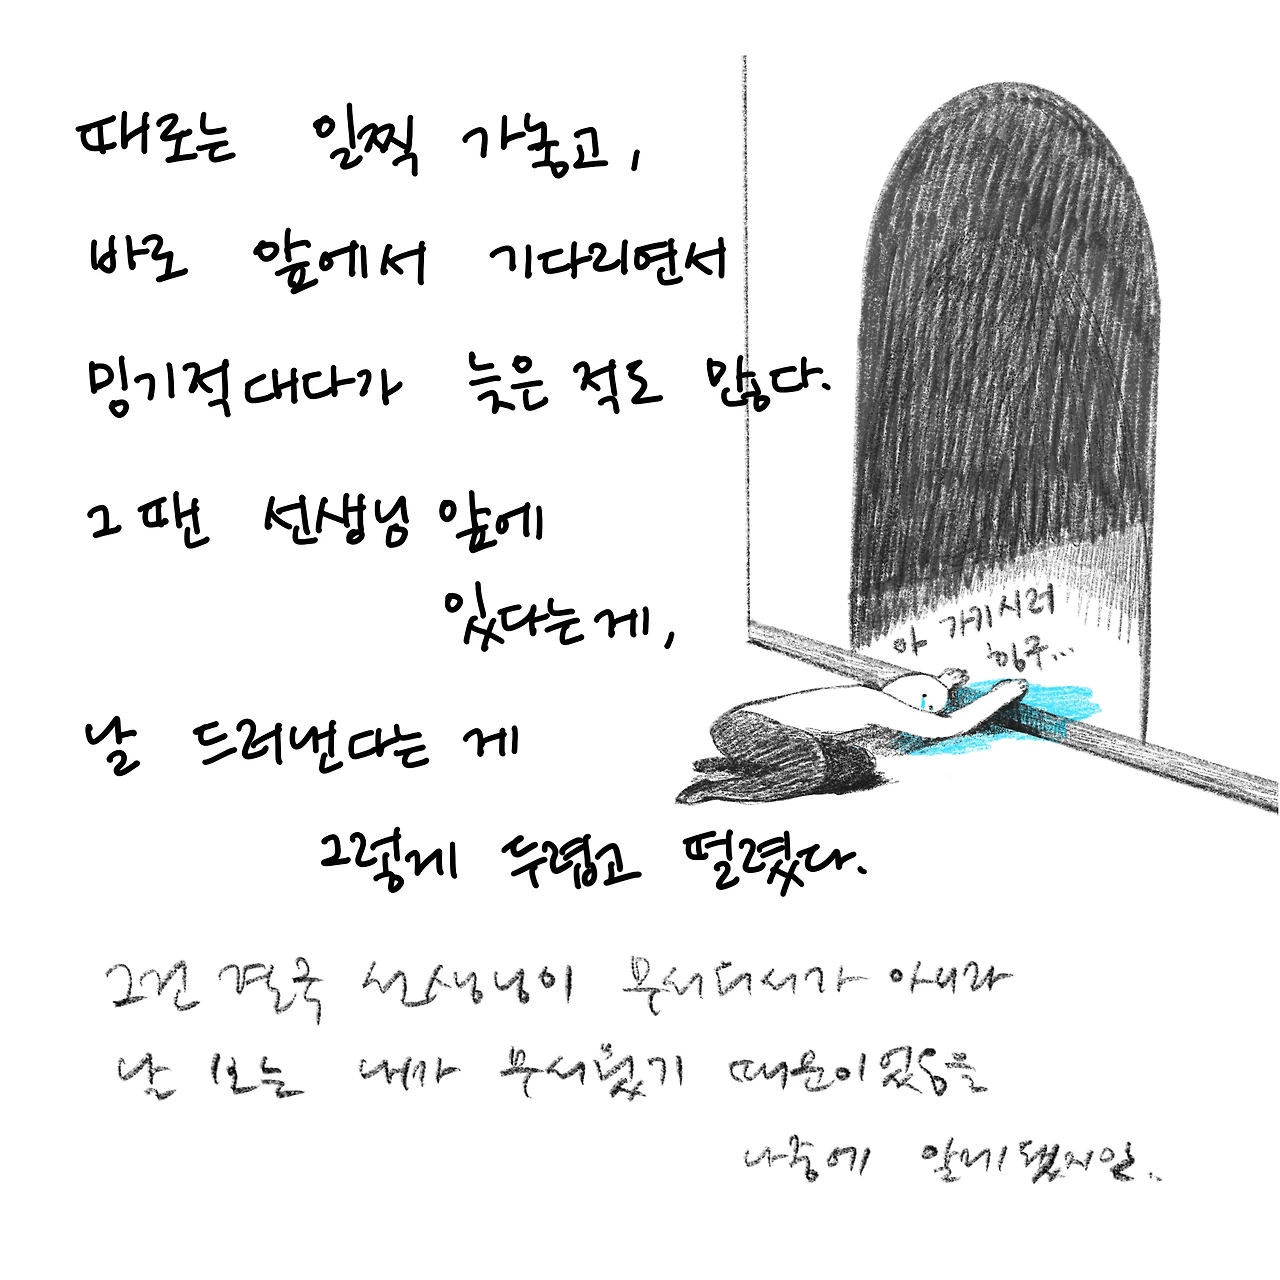 때로는 일찍 가놓고,
바로 앞에서 기다리면서
밍기적대다가 늦은 적도 많다.
그 땐 선생님 앞에
있다는게,
날 드러낸다는 게
그렇게 두렵고 떨렸다.
아 가기시러
항구...
그건 결국 선생님이 무서워서가 아니라
날 보는 내가 무서웠기 때문이었음을
나중에 알게됐지만..